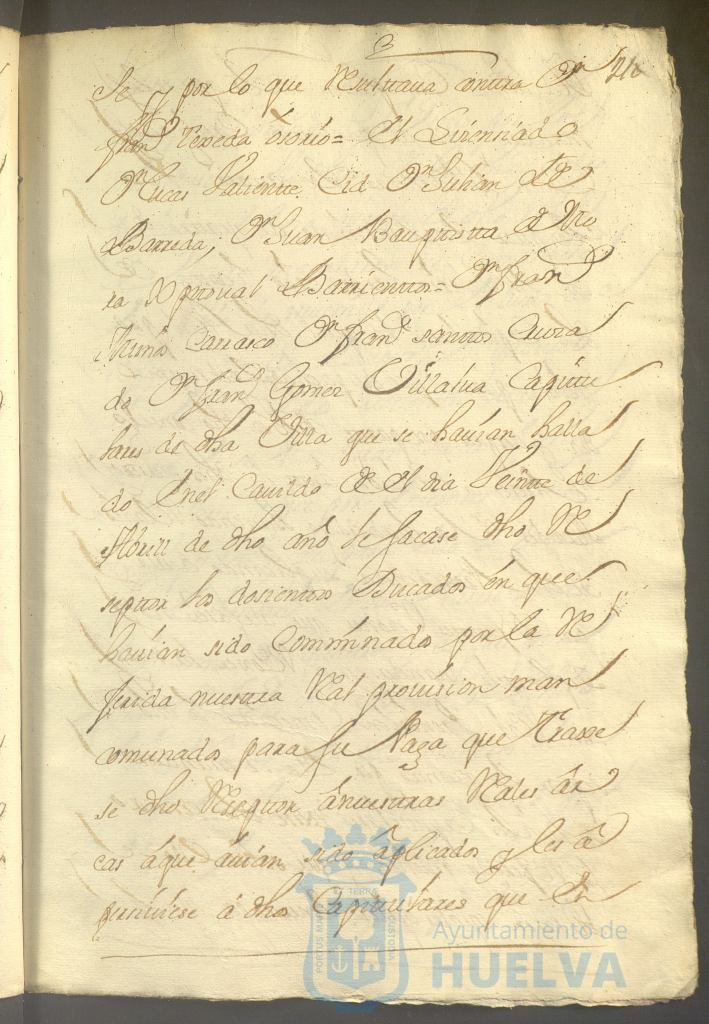 3
se y por lo que Resultaua contra Dn
franco Texeda osorio= el Lisensiado
Dn Lucas Valiente Cid Dn Julian de
Barreda, Dn Juan Bauptista de Mo
ra Xptoual Barrientos= Dn franco
Nuño Carrasco Dn franco santos Cura
do Dn franco Gomez Villalua Capitu
lares de dha Villa que se hauian halla
do enel Cauildo de el dia Veinte de
Abrill de dho año le sacase dho Re
septor los dosientos Ducados en que
hauian sido Comminados por la Re
ferida nuestra Real prouision man
comunados para su Paga que Traxe
se dho Reseptor ânuestras Reales âr
cas âque âuian sido âplicados y les â
perciuiese â dhos Capitulares que en
PORTUS MARIS ET TERRAE CUSTODIA
Ayuntamiento de
HUELVA